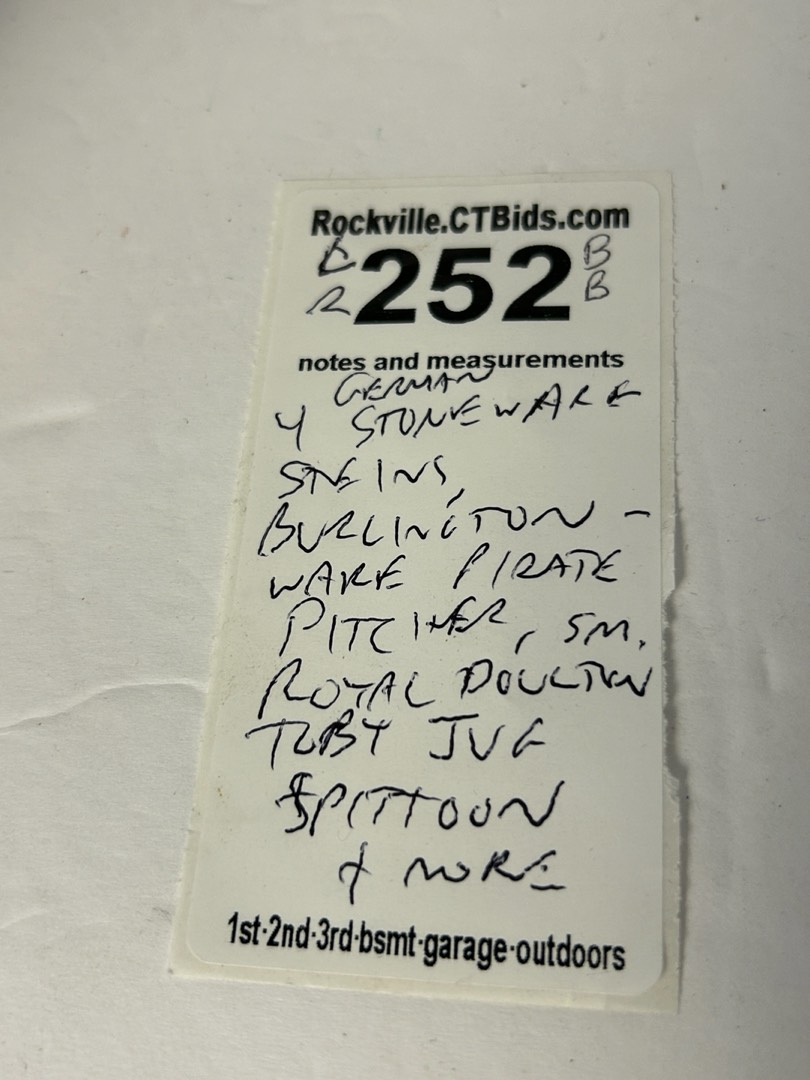 Rockville.CTBids.com
252
B
B
notes and measurements
GERMAN
4 STONEWARE
STEINS,
BURLINGTON-
WARE PIRATE
PITCHER, SM.
ROYAL DOULTON
TOBY JUG
SPITTOON
+ MORE
1st·2nd·3rd·bsmt·garage·outdoors